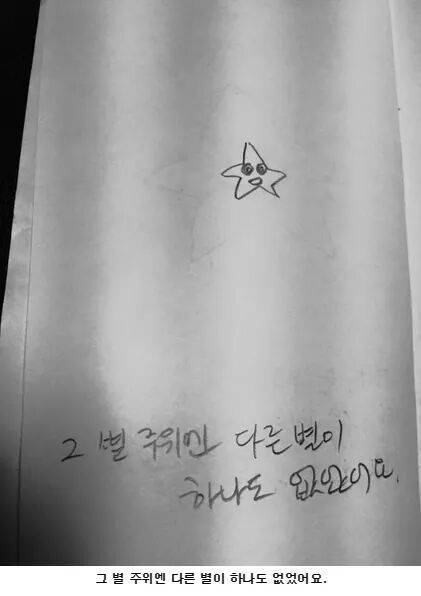 그 별 주위엔 다른 별이
하나도 없었어요.
그 별 주위엔 다른 별이 하나도 없었어요.